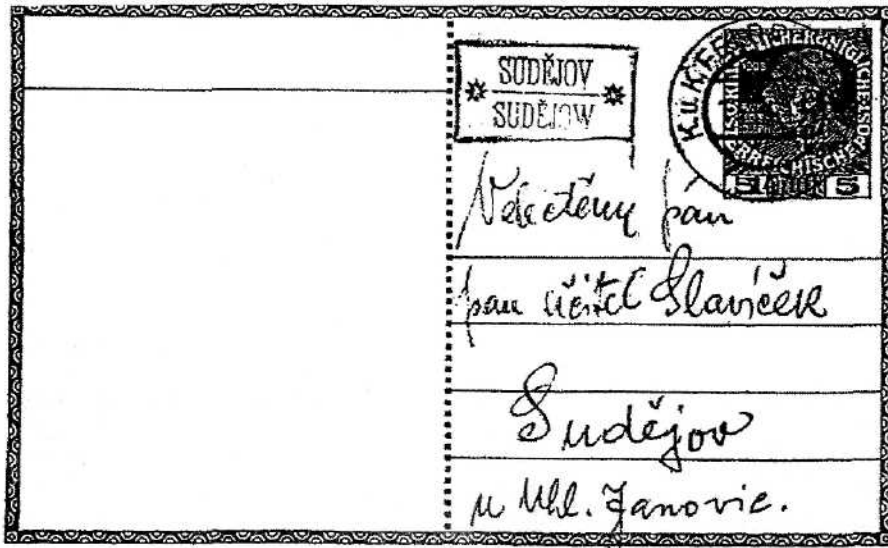 SUDĚJOV
SUDĚJOW
K.u.K.
5 5
Velectěný pán
pan učitel Slavíček
Sudějov
u Uhl. Janovic.